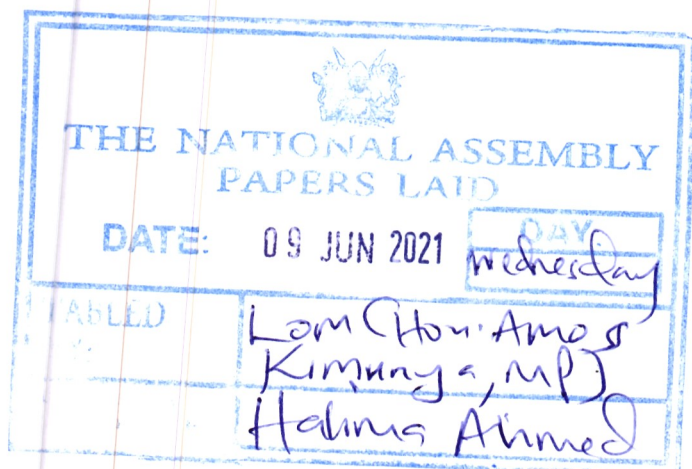 THE NATIONAL ASSEMBLY
PAPERS LAID
DATE: 09 JUN 2021
DAY
Wednesday
TABLED
Lom (Hon. Amos
Kimunya, MP)
Halima Ahmed